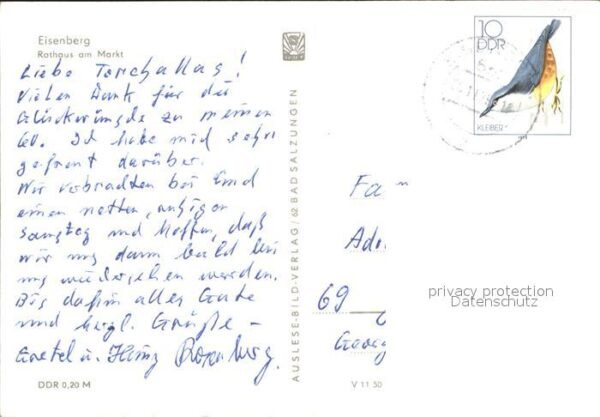 Eisenberg
Rathaus am Markt
Liebe Torchallas!
Vielen Dank für die
Glückwünsche zu meinem
60. Ich habe mich sehr
gefreut darüber.
Wir verbrachten bei Euch
einen netten, ruhigen
Samstag und hoffen, daß
wir uns dann bald bei
uns wiedersehen werden.
Bis dahin alles Gute
und herzl. Grüße –
Gretel u. Heinz
DDR 0,20 M
AUSLESE-BILD-VERLAG / 62 BAD SALZUNGEN
V 11 50
10
DDR
KLEIBER
Fa
Ado
69
Georg
privacy protection
Datenschutz